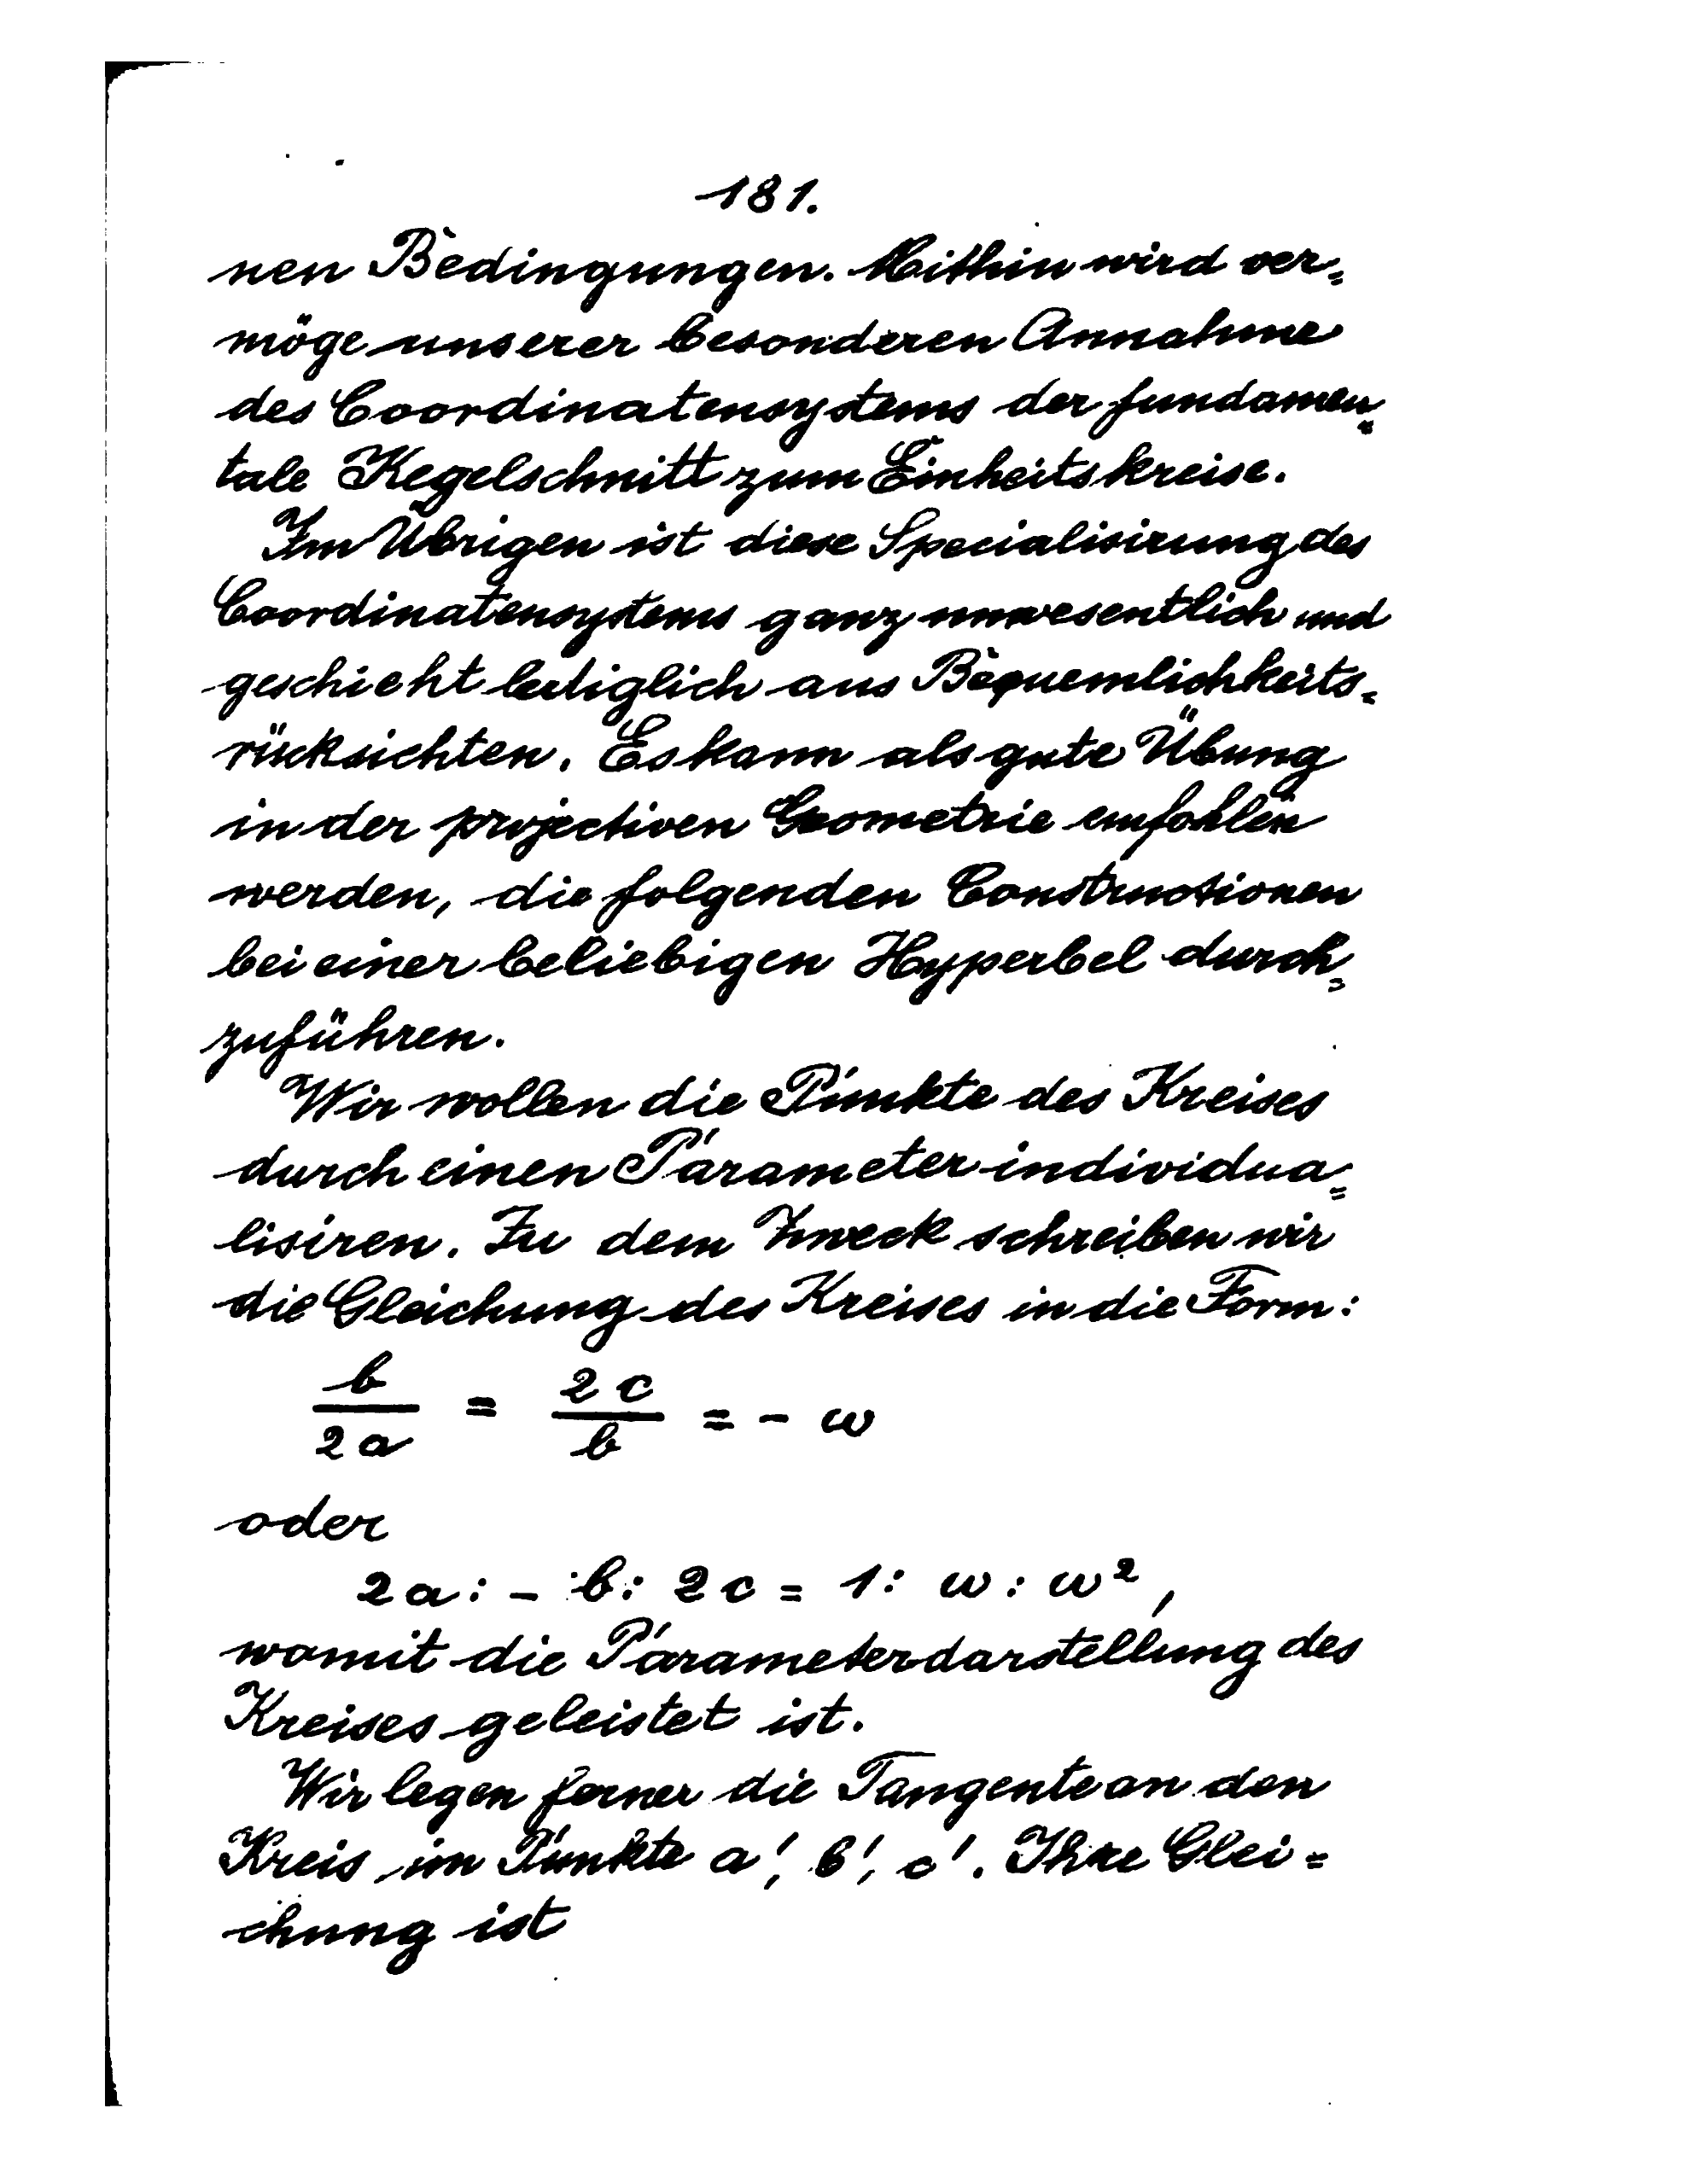 181.
nen Bedingungen. Mithin wird ver=
möge unserer besonderen Annahme
des Coordinatensystems der fundamen=
tale Kegelschnitt zum Einheitskreise.
Im Übrigen ist diese Specialisirung des
Coordinatensystems ganz unwesentlich und
geschieht lediglich aus Bequemlichkeits=
rücksichten. Es kann als gute Übung
in der projectiven Geometrie emfohlen
werden, die folgenden Constructionen
bei einer beliebigen Hyperbel durch=
zuführen.
Wir wollen die Punkte des Kreises
durch einen Parameter individua=
lisiren. Zu dem Zweck schreiben wir
die Gleichung des Kreises in die Form:
b/2a = 2c/b = - ω
oder
2a : - b : 2c = 1 : ω : ω²,
womit die Parameterdarstellung des
Kreises geleistet ist.
Wir legen ferner die Tangente an den
Kreis im Punkte a', b', c'. Ihre Glei=
chung ist